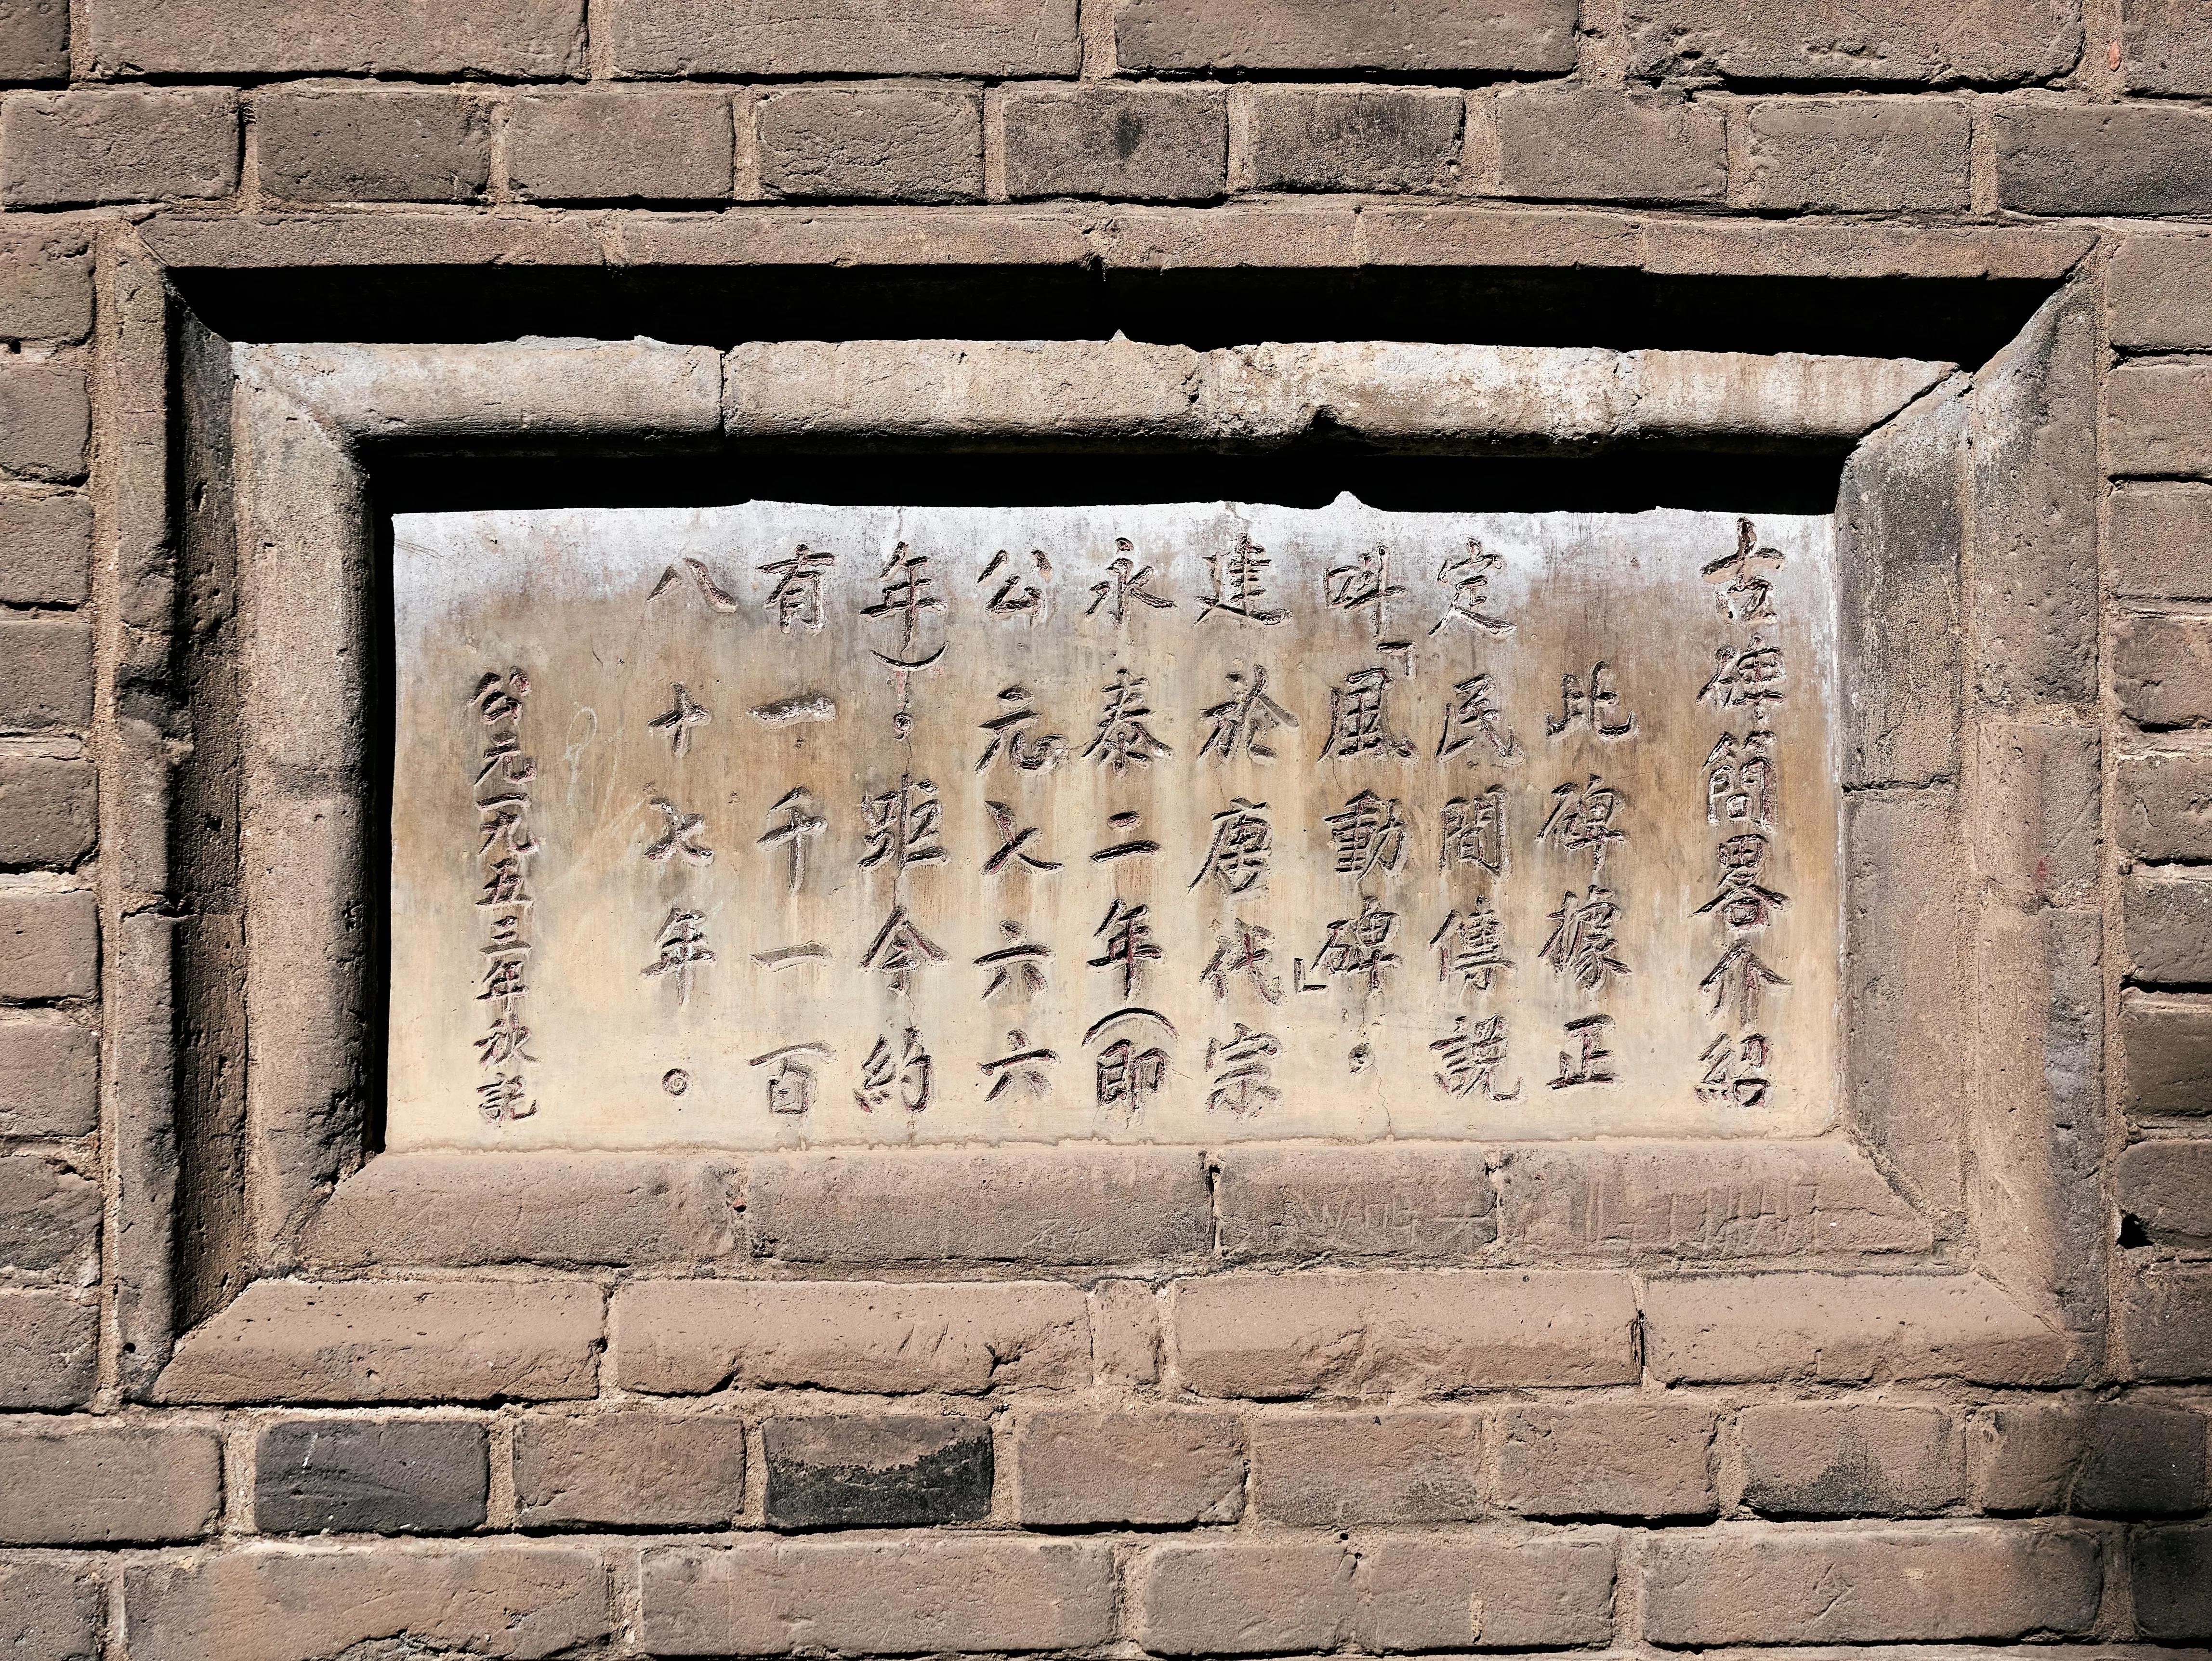 古碑簡畧介紹
此碑據正
定民間傳說
叫「風動碑」。
建於唐代宗
永泰二年（即
公元七六六
年）。距今約
有一千一百
八十七年。
公元一九五三年秋記